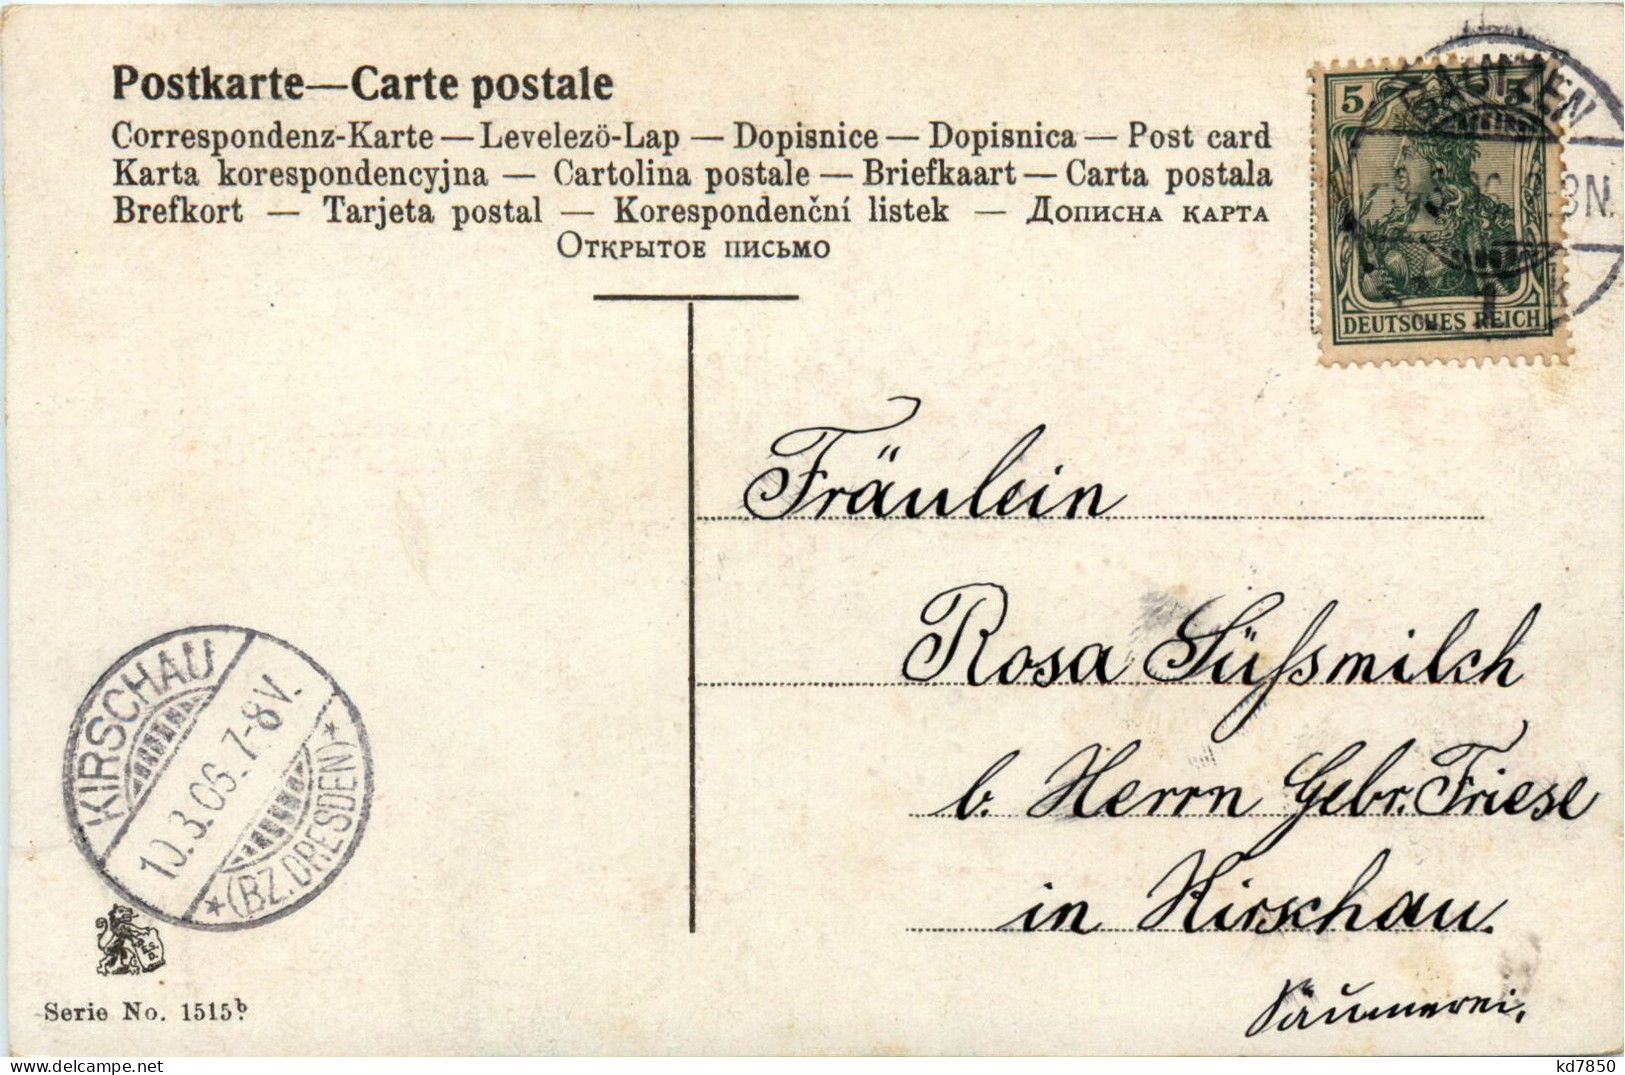 Postkarte—Carte postale
Correspondenz-Karte — Levelező-Lap — Dopisnice — Dopisnica — Post card
Karta korespondencyjna — Cartolina postale — Briefkaart — Carta postala
Brefkort — Tarjeta postal — Korespondenční listek — Дописна карта
Открытое письмо
5 5
DEUTSCHES REICH
BAUTZEN
3N.
1 k
Fräulein
Rosa Süßsmilch
b. Herrn Gebr. Friese
in Kirschau.
Säumerei.
KIRSCHAU
10.3.06. 7-8V.
*(BZ.DRESDEN)*
Serie No. 1515b.
kd7850